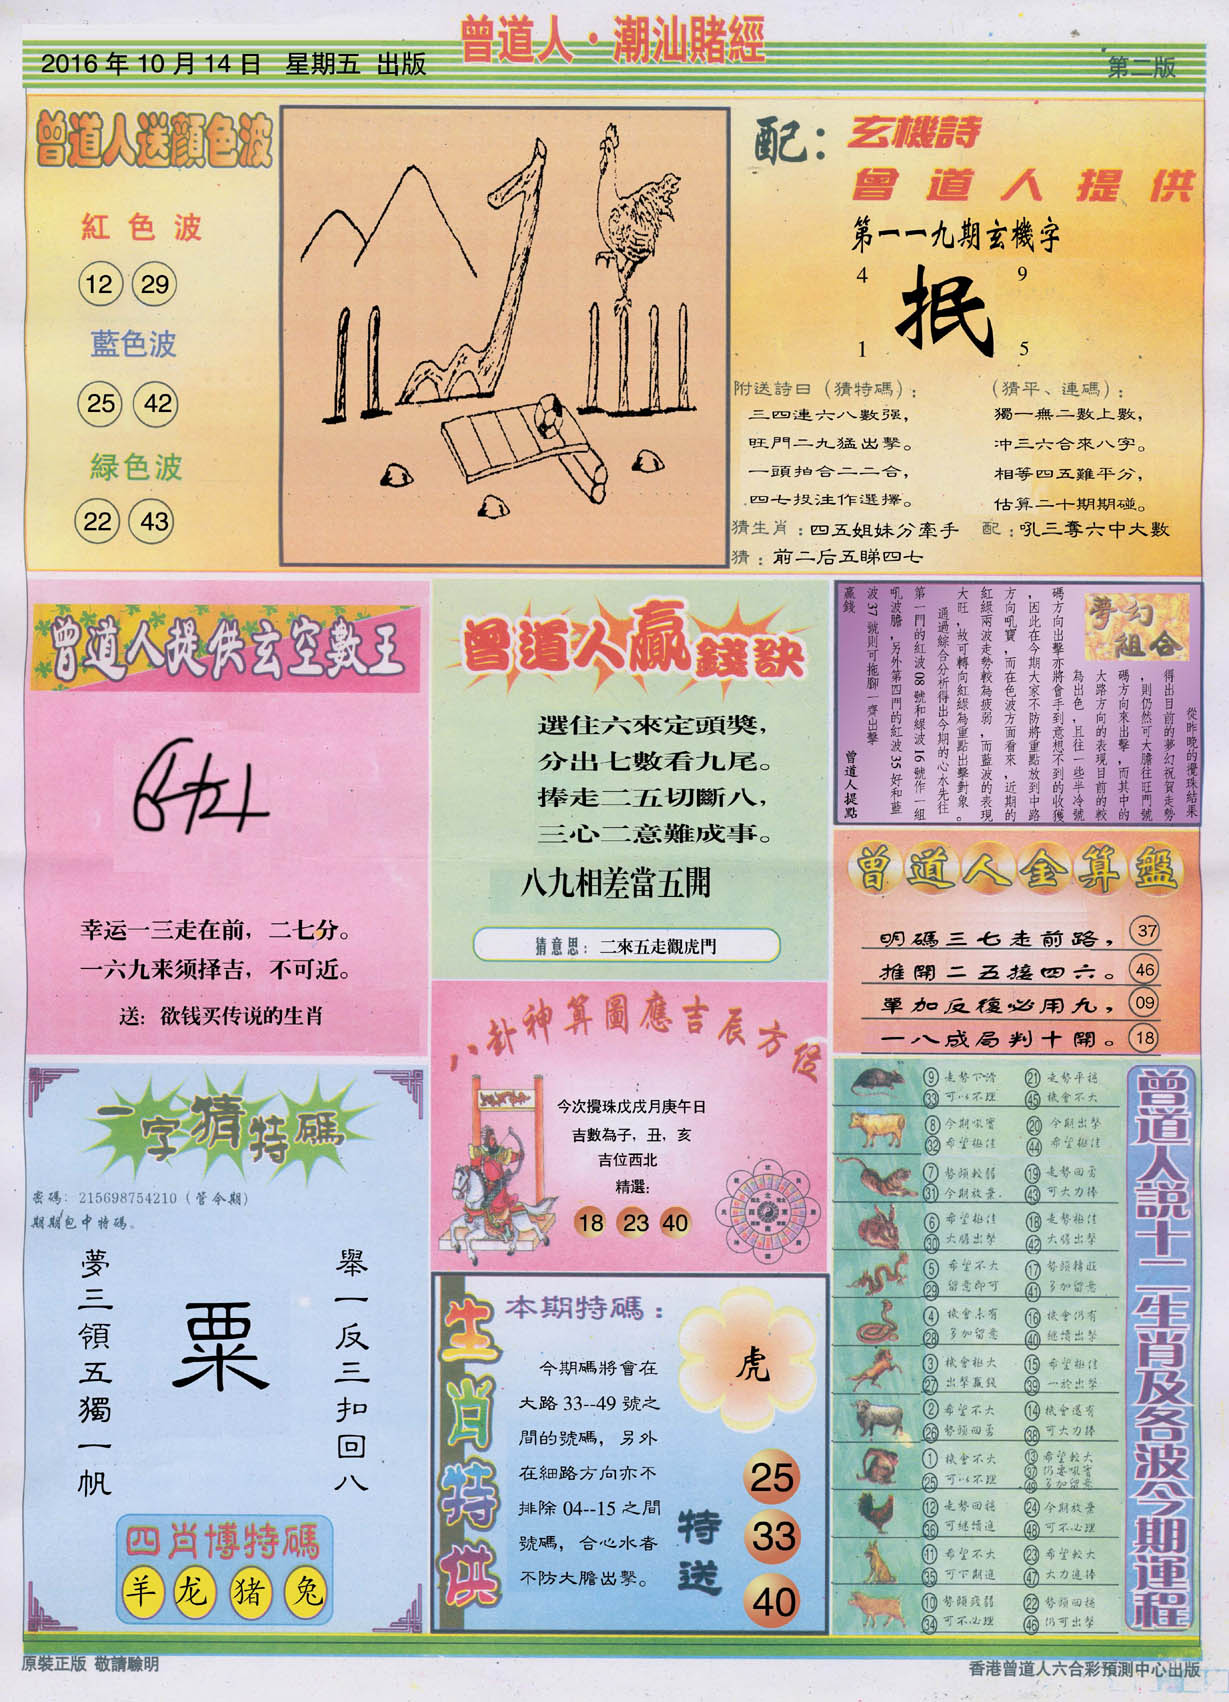 2016年10月14日 星期五 出版
曾道人·潮汕賭經
第二版
曾道人送顔色波
紅色波
12 29
藍色波
25 42
緑色波
22 43
配：玄機詩
曾道人提供
第一一九期玄機字
4 9
抿
1 5
附送詩日（猜特碼）：
三四連六八數强，
旺門二九猛出擊。
一頭拍合二二合，
四七投注作選擇。
（猜平、連碼）：
獨一無二數上數，
冲三六合來八字。
相等四五難平分，
估算二十期期碰。
猜生肖：四五姐妹分牽手
配：吼三奪六中大數
猜：前二后五睇四七
曾道人提供玄空數王
幸运一三走在前，二七分。
一六九来须择吉，不可近。
送：欲钱买传说的生肖
曾道人贏錢訣
選住六來定頭獎，
分出七數看九尾。
捧走二五切斷八，
三心二意難成事。
八九相差當五開
猜意思：二來五走觀虎門
夢幻組合
從昨晚的攪珠結果
得出目前的夢幻祝賀走勢
，則仍然可大膽往旺門號
碼方向來出擊，而其中的
大路方向的表現目前的較
為出色，且往一些半冷號
碼方向出擊亦將會手到意想不到的收獲
，因此在今期大家不防將重點放到中路
方向吼寶，而在色波方面看來，近期的
紅緑兩波走勢較為疲弱，而藍波的表現
大旺，故可轉向紅緑為重點出擊對象。
通過綜合分析得出今期的心水先往
第一門的紅波08號和緑波16號作一組
吼波膽，另外第四門的紅波35好和藍
波37號則可拖腳一齊出擊
贏錢
曾道人提點
曾道人金算盤
明碼三七走前路， 37
推開二五接四六。 46
單加反復必用九， 09
一八成局判十開。 18
八卦神算圖應吉辰方位
今次攪珠戊戌月庚午日
吉數為子，丑，亥
吉位西北
精選：
18 23 40
一字猜特碼
密碼：215698754210（管令期）
期期包中特碼。
舉一反三扣回八
粟
夢三領五獨一帆
四肖博特碼
羊 龙 猪 兔
生肖特供
本期特碼：
虎
今期碼將會在
大路33--49號之
間的號碼，另外
在細路方向亦不
排除04--15之間
號碼，合心水者
不防大膽出擊。
特送
25
33
40
曾道人説十二生肖及各波今期運程
⑨ 走勢下滑 ㉑ 走勢平穩
㉝ 可以不理 ㊺ 機會不大
⑧ 今期吼寶 ⑳ 今期出擊
㉜ 希望極佳 ㊹ 希望極佳
⑦ 勢頭較弱 ⑲ 走勢回勇
㉛ 今期放棄 ㊸ 可大力捧
⑥ 希望極佳 ⑱ 走勢極佳
㉚ 大膽出擊 ㊷ 大膽出擊
⑤ 希望不大 ⑰ 勢頭精旺
㉙ 留意即可 ㊶ 多加留意
④ 機會未有 ⑯ 機會仍有
㉘ 多加留意 ㊵ 繼續出擊
③ 機會極大 ⑮ 希望極佳
㉗ 出擊贏錢 ㊴ 一於出擊
② 希望不大 ⑭ 機會還有
㉖ 勢頭回勇 ㊳ 可大力捧
① 機會不大 ⑬ 希望較大
㊲ 仍要吼寶
㉕ 可以不理 ㊾ 多加留意
⑫ 走勢回穩 ㉔ 今期放棄
㊱ 可繼續追 ㊽ 可不必理
⑪ 希望不大 ㉓ 希望較大
㉟ 可下期追 ㊼ 大力追捧
⑩ 勢頭疲弱 ㉒ 勢頭回穩
㉞ 可不必理 ㊻ 仍可出擊
原裝正版 敬請驗明
香港曾道人六合彩預測中心出版